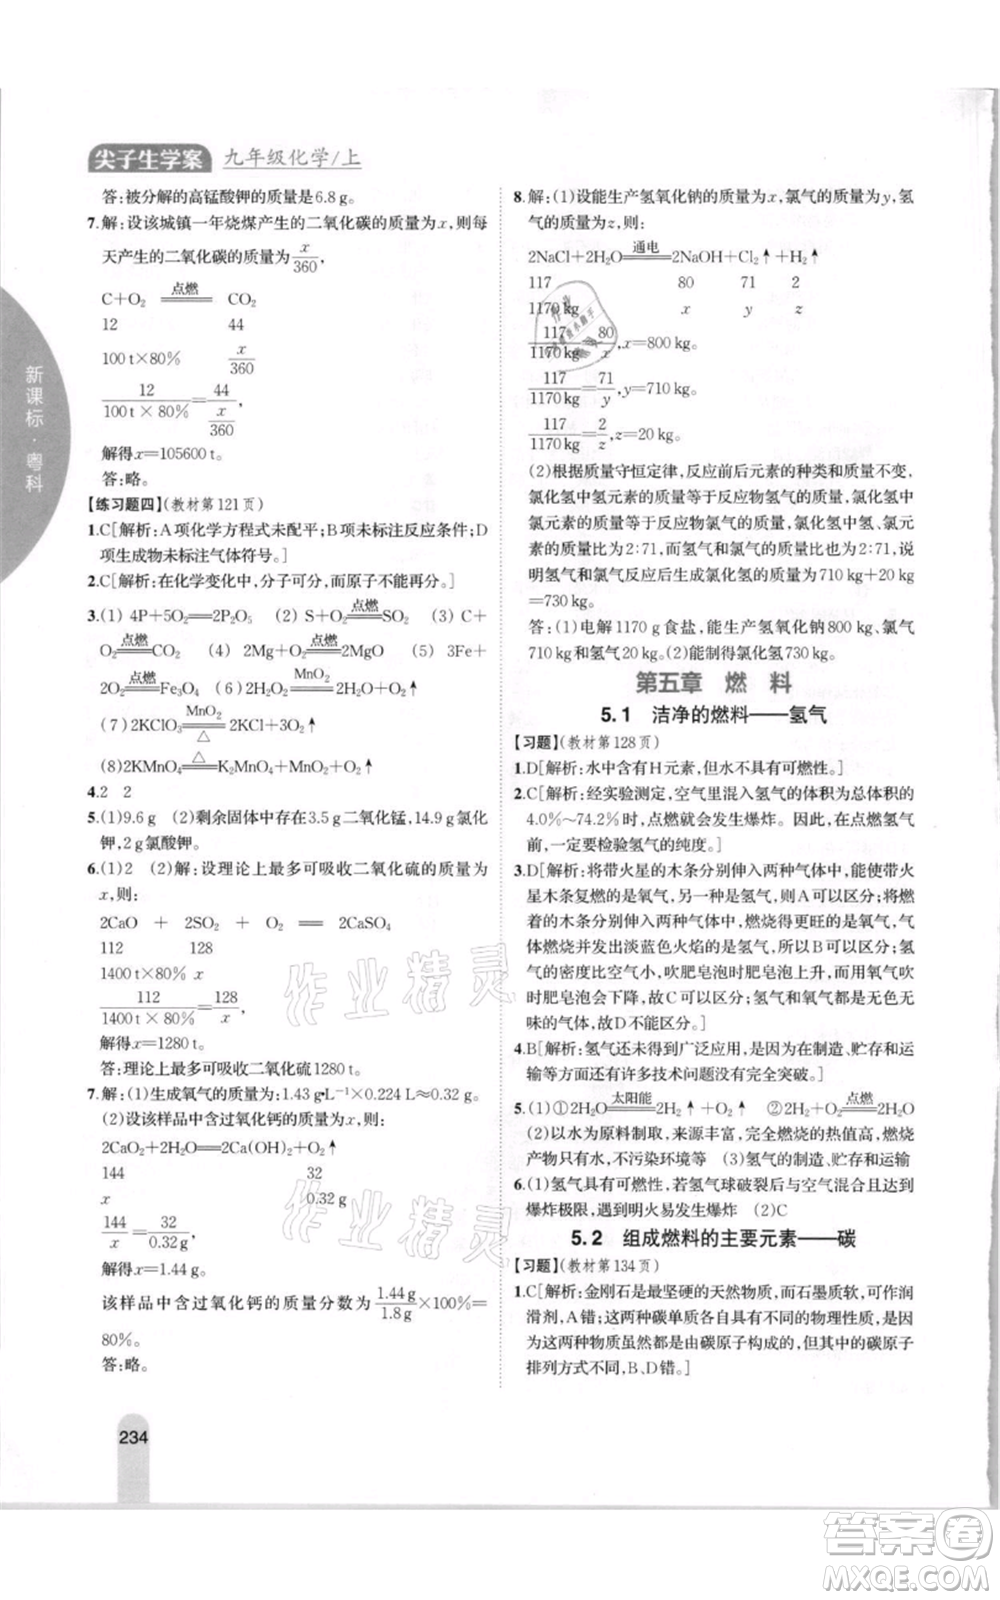 尖子生学案 九年级化学/上
新课标·粤科
答:被分解的高锰酸钾的质量是6.8 g。
7.解:设该城镇一年烧煤产生的二氧化碳的质量为x,则每
天产生的二氧化碳的质量为x/360,
C+O₂ ══点燃══ CO₂
12 44
100 t×80% x/360
12/(100 t×80%)=44/(x/360)
解得x=105600 t。
答:略。
【练习题四】(教材第121页)
1.C[解析:A项化学方程式未配平;B项未标注反应条件;D
项生成物未标注气体符号。]
2.C[解析:在化学变化中,分子可分,而原子不能再分。]
3.(1) 4P+5O₂══2P₂O₅ (2) S+O₂══点燃══SO₂ (3) C+
O₂══点燃══CO₂ (4) 2Mg+O₂══点燃══2MgO (5) 3Fe+
2O₂══点燃══Fe₃O₄ (6) 2H₂O₂══MnO₂══2H₂O+O₂↑
(7) 2KClO₃══MnO₂/△══2KCl+3O₂↑
(8)2KMnO₄══△══K₂MnO₄+MnO₂+O₂↑
4.2 2
5.(1)9.6 g (2)剩余固体中存在3.5 g二氧化锰,14.9 g氯化
钾,2 g氯酸钾。
6.(1)2 (2)解:设理论上最多可吸收二氧化硫的质量为
x,则:
2CaO + 2SO₂ + O₂ ══ 2CaSO₄
112 128
1400 t×80% x
112/(1400 t×80%)=128/x
解得x=1280 t。
答:理论上最多可吸收二氧化硫1280 t。
7.解:(1)生成氧气的质量为:1.43 g•L⁻¹×0.224 L≈0.32 g。
(2)设该样品中含过氧化钙的质量为x,
2CaO₂+2H₂O══2Ca(OH)₂+O₂↑
144 32
x 0.32 g
144/x=32/0.32 g
解得x=1.44 g。
该样品中含过氧化钙的质量分数为1.44 g/1.8 g×100%=
80%。
答:略。
234
8.解:(1)设能生产氢氧化钠的质量为x,氯气的质量为y,氢
气的质量为z,则:
2NaCl+2H₂O══通电══2NaOH+Cl₂↑+H₂↑
117 80 71 2
1170 kg x y z
117/1170 kg=80/x,x=800 kg。
117/1170 kg=71/y,y=710 kg。
117/1170 kg=2/z,z=20 kg。
(2)根据质量守恒定律,反应前后元素的种类和质量不变,
氯化氢中氢元素的质量与反应物氢气的质量、氯化氢中
氯元素的质量与反应物氯气的质量,氯化氢中氢、氯元
素的质量比为2:71,而氢气和氯气的质量比也为2:71,说
明氢气和氯气恰好完全反应后生成氯化氢为710 kg+20 kg
=730 kg。
答:(1)电解1170 g食盐,能生产氢氧化钠800 kg、氯气
710 kg和氢气20 kg。(2)能制得氯化氢730 kg。
第五章 燃 料
5.1 洁净的燃料——氢气
【习题】(教材第128页)
1.D[解析:水中含有H元素,但水不具有可燃性。]
2.C[解析:经实验测定,空气里混入氢气的体积为总体积的
4.0%~74.2%时,点燃就会发生爆炸。因此,在点燃氢气
前,一定要检验氢气的纯度。]
3.D[解析:将带火星的木条分别伸入两种气体中,能使带火
星木条复燃的是氧气,另一种是氢气,所以A可以区分;将燃
着的木条分别伸入两种气体中,燃烧得更旺的是氧气,气
体燃烧并发出淡蓝色火焰的是氢气,所以B可以区分;氢
气的密度比空气小,吹肥皂泡时肥皂泡上升,而用氧气吹
时肥皂泡会下降,故C可以区分;氢气和氧气都是无色无
味的气体,故D不能区分。]
4.B[解析:氢气还未得到广泛应用,是因为在制造、贮存和运
输等方面还有许多技术问题没有完全解决。]
5.(1)①2H₂O══太阳能══2H₂↑+O₂↑ ②2H₂+O₂══点燃══2H₂O
(2)以水为原料制取,来源丰富,完全燃烧的热值高,燃烧
产物只有水,不污染环境等 (3)氢气的制造、贮存和运输
6.(1)氢气具有可燃性,若氢气球破裂后与空气混合,达到
爆炸极限,遇到明火易发生爆炸 (2)C
5.2 组成燃料的主要元素——碳
【习题】(教材第134页)
1.C[解析:金刚石是最坚硬的天然物质,而石墨质软,可作润
滑剂,A错;这两种物质各自具有不同的物理性质,是因为
这两种物质虽然都是由碳原子构成的,但其中的碳原子
排列方式不同,B、D错。]
作业精灵
作业精灵
答案卷
MXQE.COM